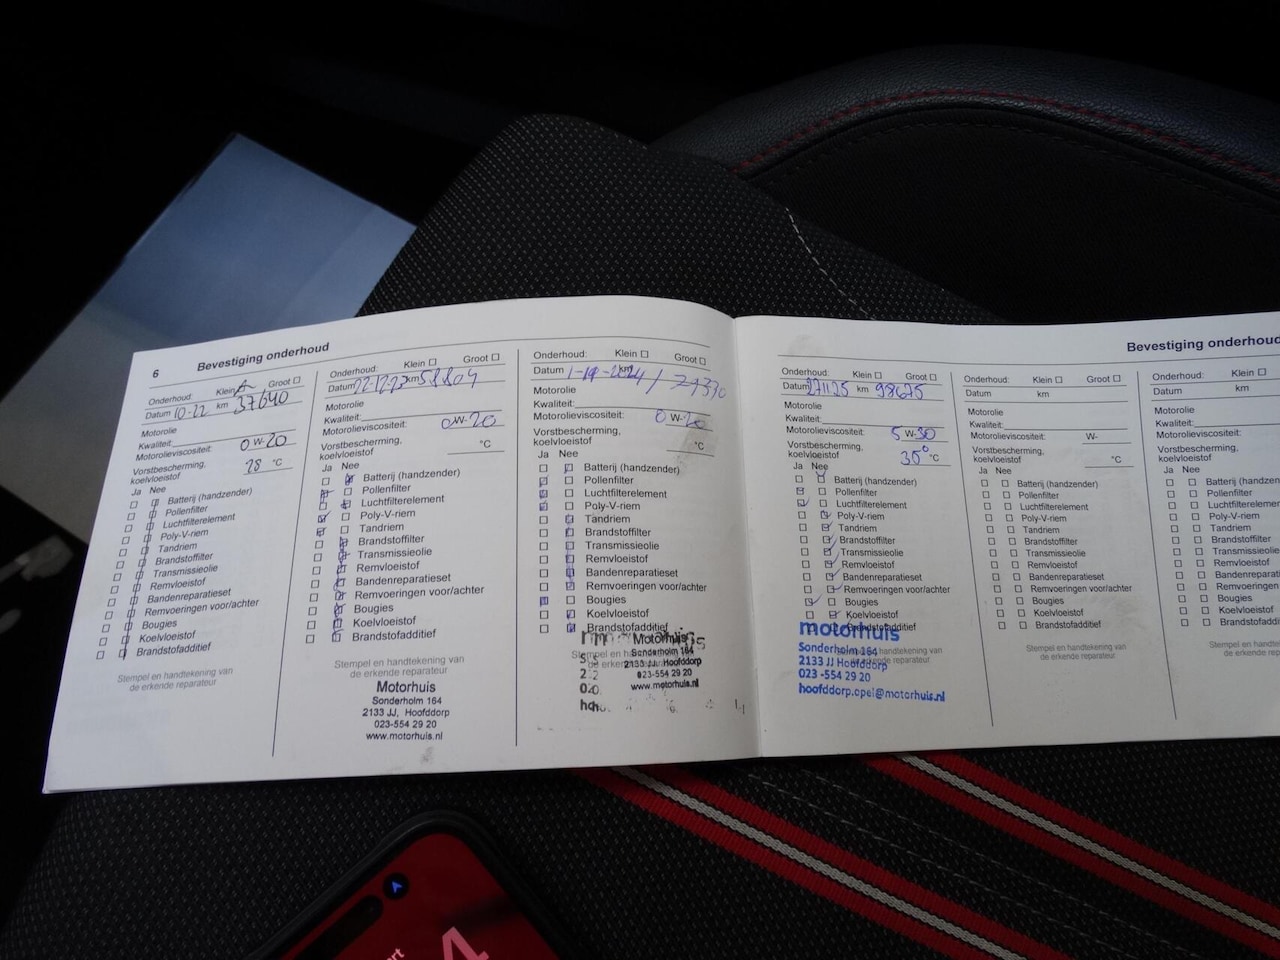 6 Bevestiging onderhoud
Onderhoud: Klein Groot
Datum 10-22 km 37640
Motorolie
Kwaliteit:
Motorolieviscositeit: 0 W-20
Vorstbescherming,
koelvloeistof 28 °C
Ja Nee
Batterij (handzender)
Pollenfilter
Luchtfilterelement
Poly-V-riem
Tandriem
Brandstoffilter
Transmissieolie
Remvloeistof
Bandenreparatieset
Remvoeringen voor/achter
Bougies
Koelvloeistof
Brandstofadditief
Stempel en handtekening van
de erkende reparateur
Onderhoud: Klein Groot
Datum 22-12-23 km 58804
Motorolie
Kwaliteit:
Motorolieviscositeit: 0 W-20
Vorstbescherming,
koelvloeistof °C
Ja Nee
Batterij (handzender)
Pollenfilter
Luchtfilterelement
Poly-V-riem
Tandriem
Brandstoffilter
Transmissieolie
Remvloeistof
Bandenreparatieset
Remvoeringen voor/achter
Bougies
Koelvloeistof
Brandstofadditief
Stempel en handtekening van
de erkende reparateur
Motorhuis
Sonderholm 164
2133 JJ, Hoofddorp
023-554 29 20
www.motorhuis.nl
Onderhoud: Klein Groot
Datum km
Motorolie
Kwaliteit:
Motorolieviscositeit: 0 W-20
Vorstbescherming,
koelvloeistof °C
Ja Nee
Batterij (handzender)
Pollenfilter
Luchtfilterelement
Poly-V-riem
Tandriem
Brandstoffilter
Transmissieolie
Remvloeistof
Bandenreparatieset
Remvoeringen voor/achter
Bougies
Koelvloeistof
Brandstofadditief
Motorhuis
Sonderholm 164
2133 JJ, Hoofddorp
023-554 29 20
www.motorhuis.nl
Bevestiging onderhoud
Onderhoud: Klein Groot
Datum 271125 km 98675
Motorolie
Kwaliteit:
Motorolieviscositeit: 5 W-30
Vorstbescherming,
koelvloeistof 35° °C
Ja Nee
Batterij (handzender)
Pollenfilter
Luchtfilterelement
Poly-V-riem
Tandriem
Brandstoffilter
Transmissieolie
Remvloeistof
Bandenreparatieset
Remvoeringen voor/achter
Bougies
Koelvloeistof
Brandstofadditief
motorhuis
Sonderholm 164
2133 JJ Hoofddorp
023 -554 29 20
hoofddorp.opel@motorhuis.nl
Onderhoud: Klein Groot
Datum km
Motorolie
Kwaliteit:
Motorolieviscositeit: W-
Vorstbescherming,
koelvloeistof °C
Ja Nee
Batterij (handzender)
Pollenfilter
Luchtfilterelement
Poly-V-riem
Tandriem
Brandstoffilter
Transmissieolie
Remvloeistof
Bandenreparatieset
Remvoeringen voor/achter
Bougies
Koelvloeistof
Brandstofadditief
Stempel en handtekening van
de erkende reparateur
Onderhoud: Klein
Datum km
Motorolie
Kwaliteit:
Motorolieviscositeit:
Vorstbescherming,
koelvloeistof
Ja Nee
Batterij (handzen
Pollenfilter
Luchtfiltereleme
Poly-V-riem
Tandriem
Brandstoffilter
Transmissieolie
Remvloeistof
Bandenreparati
Remvoeringen
Bougies
Koelvloeistof
Brandstofadditi
Stempel en ha
de erken